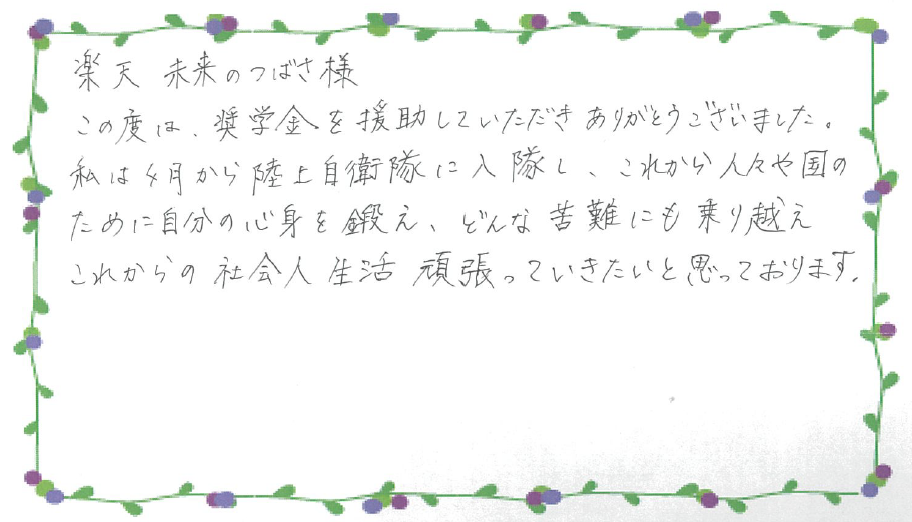 楽天 未来のつばさ様
この度は、奨学金を援助していただきありがとうございました。
私は4月から陸上自衛隊に入隊し、これから人々や国の
ために自分の心身を鍛え、どんな苦難にも乗り越え
これからの社会人生活頑張っていきたいと思っております。